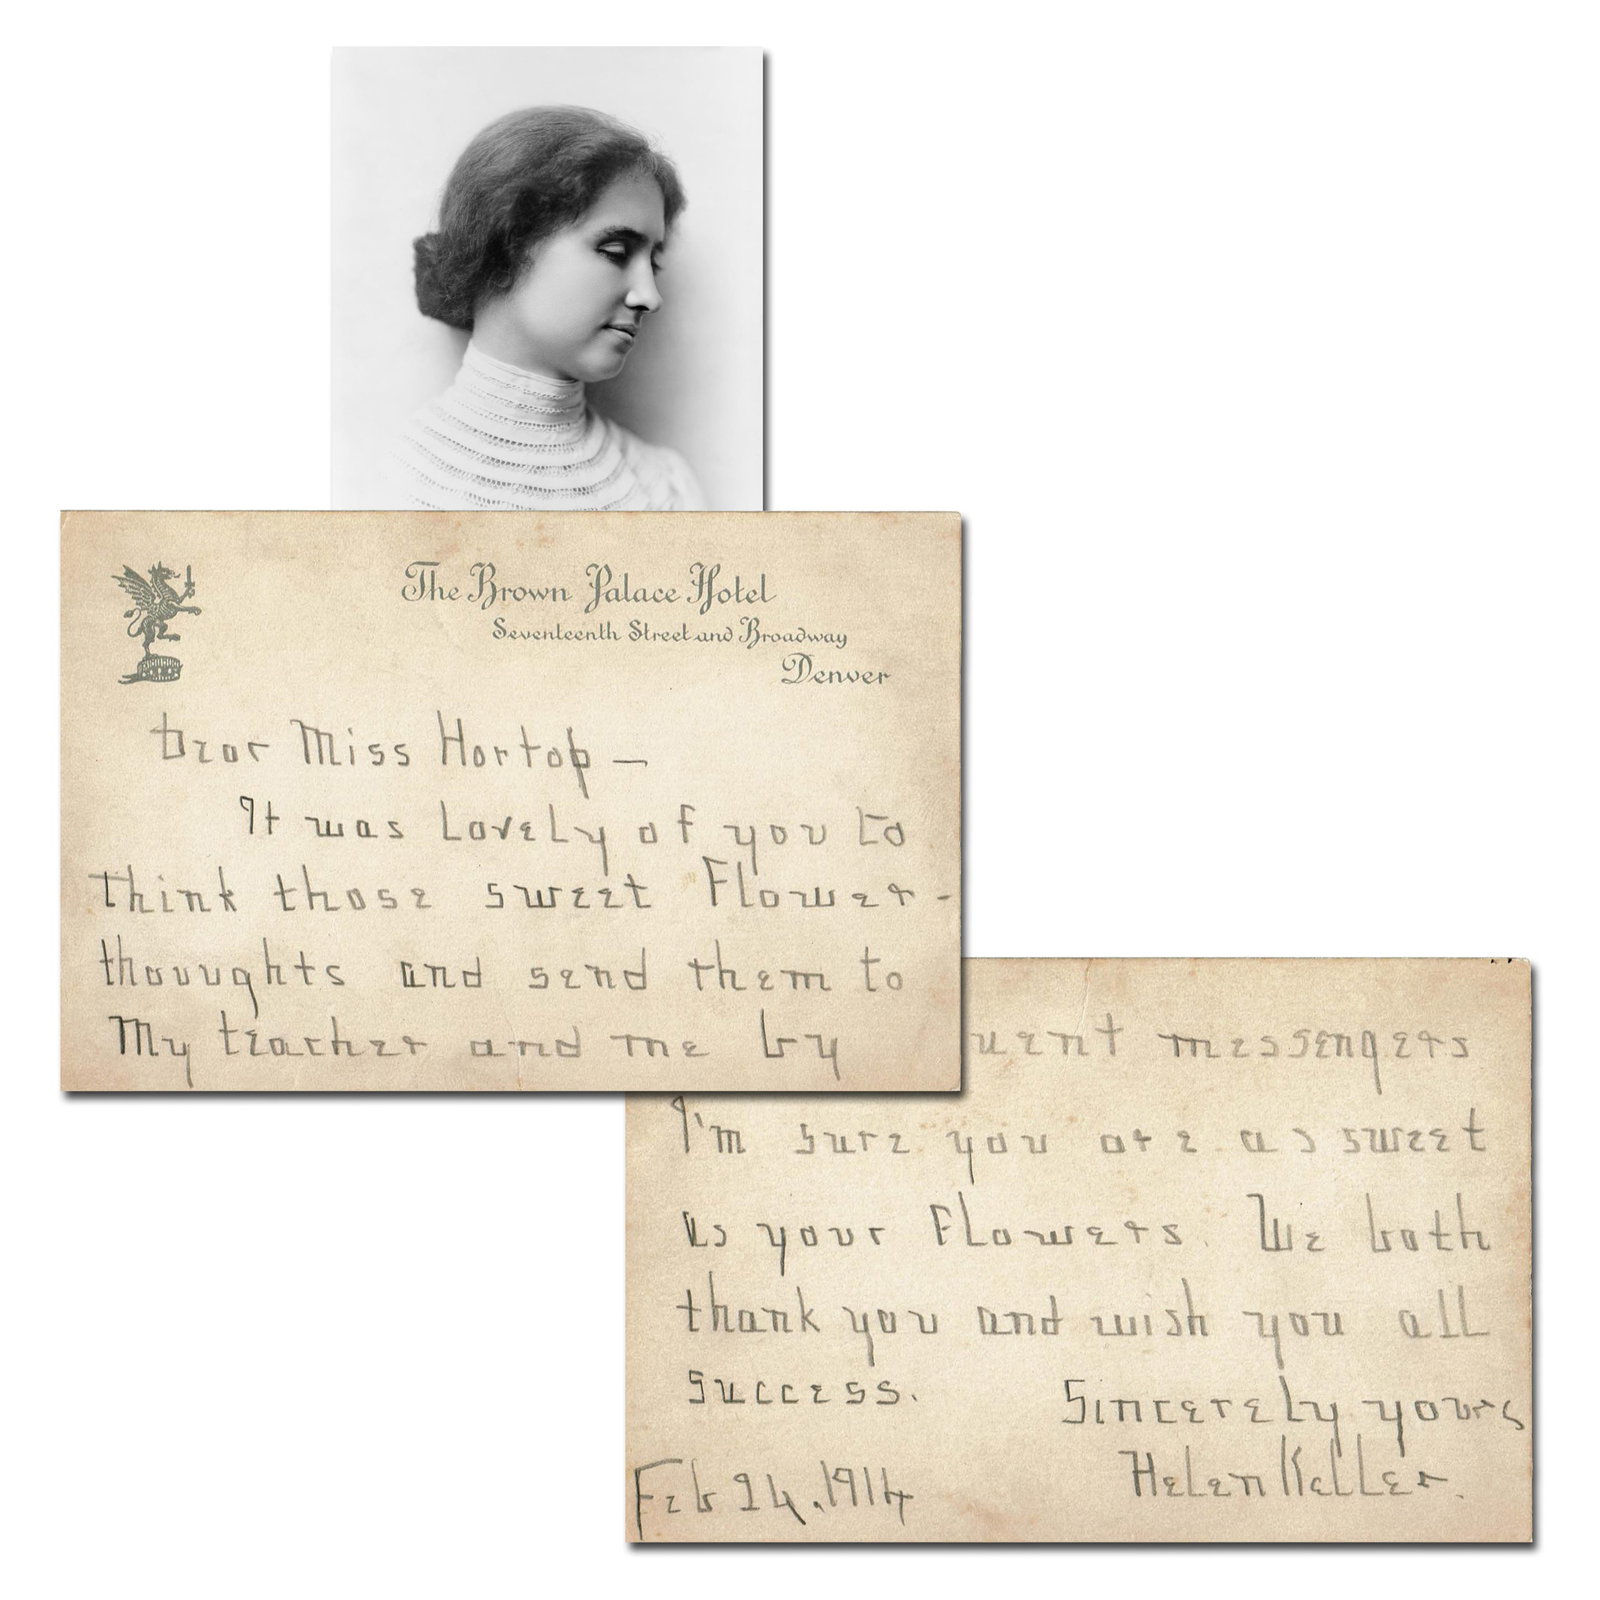 The Brown Palace Hotel
Seventeenth Street and Broadway
Denver
Dear Miss Hortop —
It was lovely of you to
think those sweet Flower-
thouughts and send them to
My teacher and me by
uent messengers
I'm sure you are as sweet
as your Flowers. We both
thank you and wish you all
success.
Sincerely yours
Helen Keller.
Feb 24, 1914